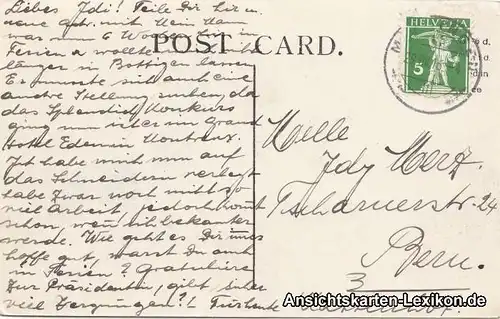 Liebes Idi! Teile Dir hier m.
neue Adr. mit. Mein Mann
war nun 6 Wochen hier in
Ferien & wollte mich nicht
länger in Bottigen lassen
Er musste sich auch eine
andre Stellung suchen, da
das Splendid Konkurs
ging nun ist er im Grand
Hotel Eden in Montreux.
Ich habe mich nun auf
das Schneidern verlegt
habe zwar noch nicht so
viel Arbeit, jedoch kommt
schon, wenn ich bekannter
werde. Wie geht es Dir
hoffe gut, warst Du auch
in Ferien? Gratuliere
zur Präsidentin, gibt sicher
viel Vergnügen?!
POST CARD.
HELVETIA
5
Melle
Idy Merz.
Tscharnerstr. 24
Bern.
3
Ansichtskarten-Lexikon.de